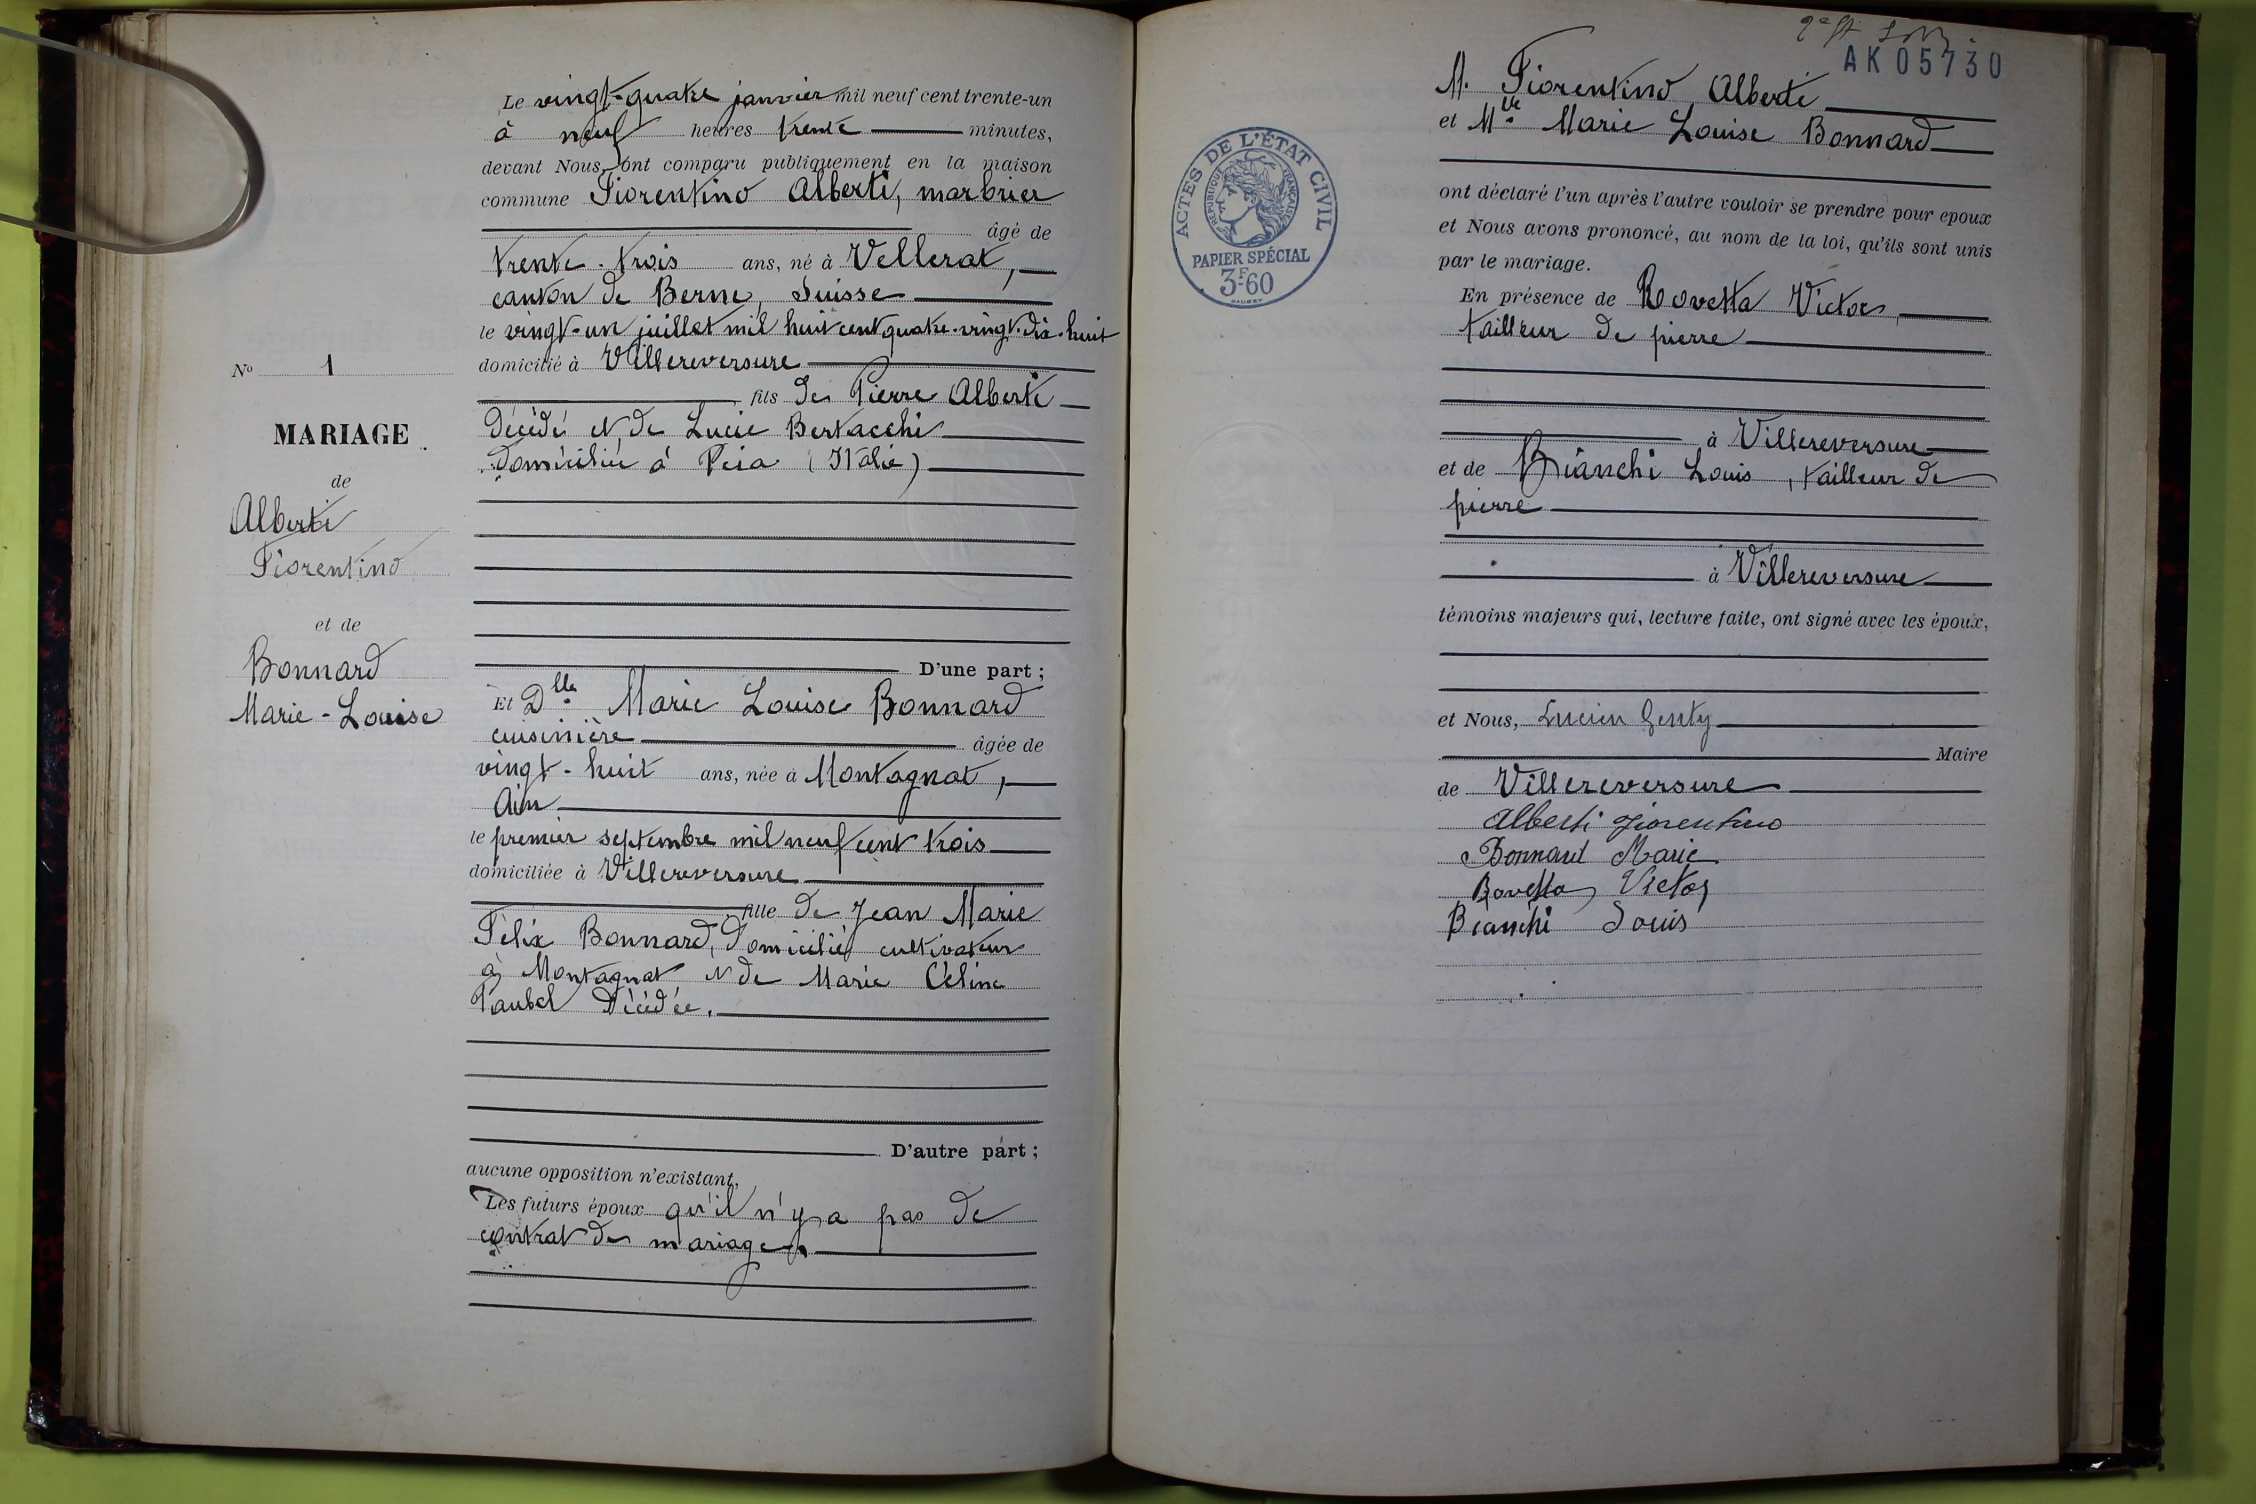 N° 1
MARIAGE
de
Alberti
Fiorentino
et de
Bonnard
Marie-Louise
Le vingt-quatre janvier mil neuf cent trente-un
à neuf heures trente minutes,
devant Nous, ont comparu publiquement en la maison
commune Fiorentino Alberti, marbrier
âgé de
trente-trois ans, né à Vellerat,
canton de Berne, Suisse
le vingt-un juillet mil huit cent quatre-vingt-dix-huit
domicilié à Villereversure
fils de Pierre Alberti
décédé et de Lucie Bertacchi
domiciliée à (Italie)
D'une part ;
Et Dlle Marie Louise Bonnard
cuisinière âgée de
vingt-huit ans, née à Montagnat,
Ain
le premier septembre mil neuf cent trois
domiciliée à Villereversure
fille de Jean Marie
Félix Bonnard, domicilié cultivateur
à Montagnat et de Marie Céline
Paubel décédée.
D'autre part ;
aucune opposition n'existant,
Les futurs époux qu'il n'y a pas de
contrat de mariage.
AK 05730
M. Fiorentino Alberti
et Mlle Marie Louise Bonnard
ACTES DE L'ÉTAT CIVIL
RÉPUBLIQUE FRANÇAISE
PAPIER SPÉCIAL
3F60
ont déclaré l'un après l'autre vouloir se prendre pour epoux
et Nous avons prononcé, au nom de la loi, qu'ils sont unis
par le mariage.
En présence de Rovetta Victor,
tailleur de pierre
à Villereversure
et de Bianchi Louis, tailleur de
pierre
à Villereversure
témoins majeurs qui, lecture faite, ont signé avec les époux,
et Nous, Lucien Genty
Maire
de Villereversure
Alberti Fiorentino
Bonnard Marie
Rovetta Victor
Bianchi Louis